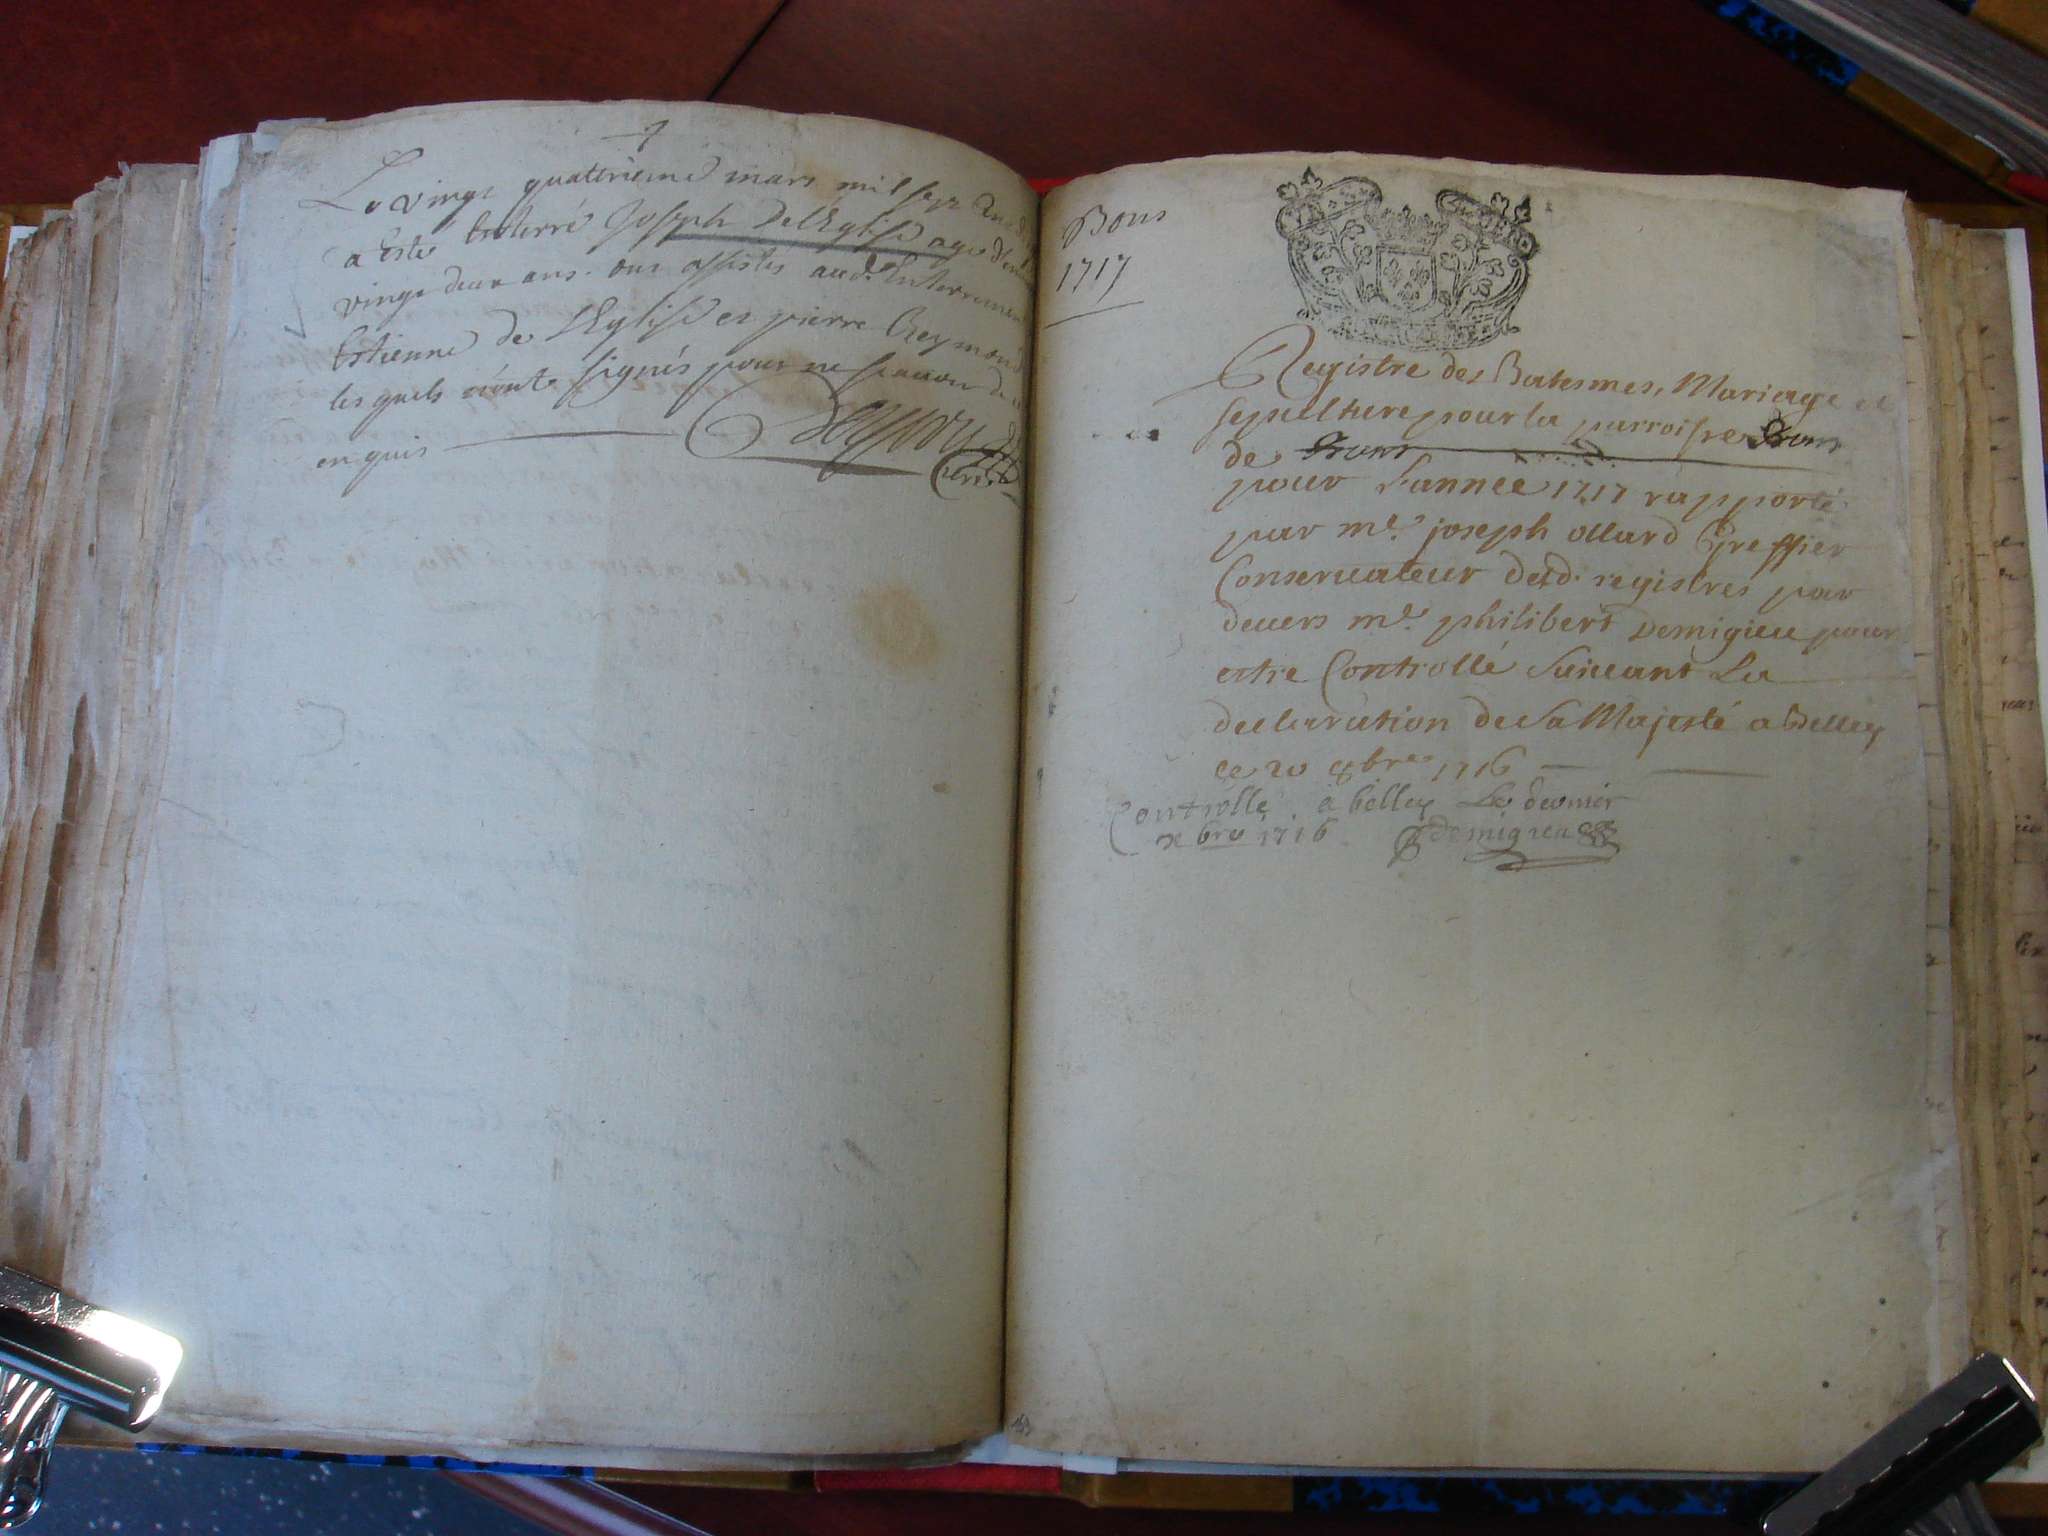 Le vingt quatrieme mars mil sept
a Esté Enterré Joseph De l'Eglise agé
vingt deux ans. ont assistés aud. Enterrement
Estienne de l'Eglise et pierre Reymond
les quels n'ont signés pour ne scavoir de ce
enquis
Bons
1717
Registre des Batesmes, Mariage et
sepulture pour la parroisse Bons
de
pour L'annee 1717 rapporté
par me. joseph ollard Greffier
Conservateur desd. registres par
devers me. philibert Demigieu pour
estre Controllé Suivant La
declaration de Sa Majesté a Belley
ce 20 8bre 1716
Controllé a belley Le dernier
xbre 1716 demigieu